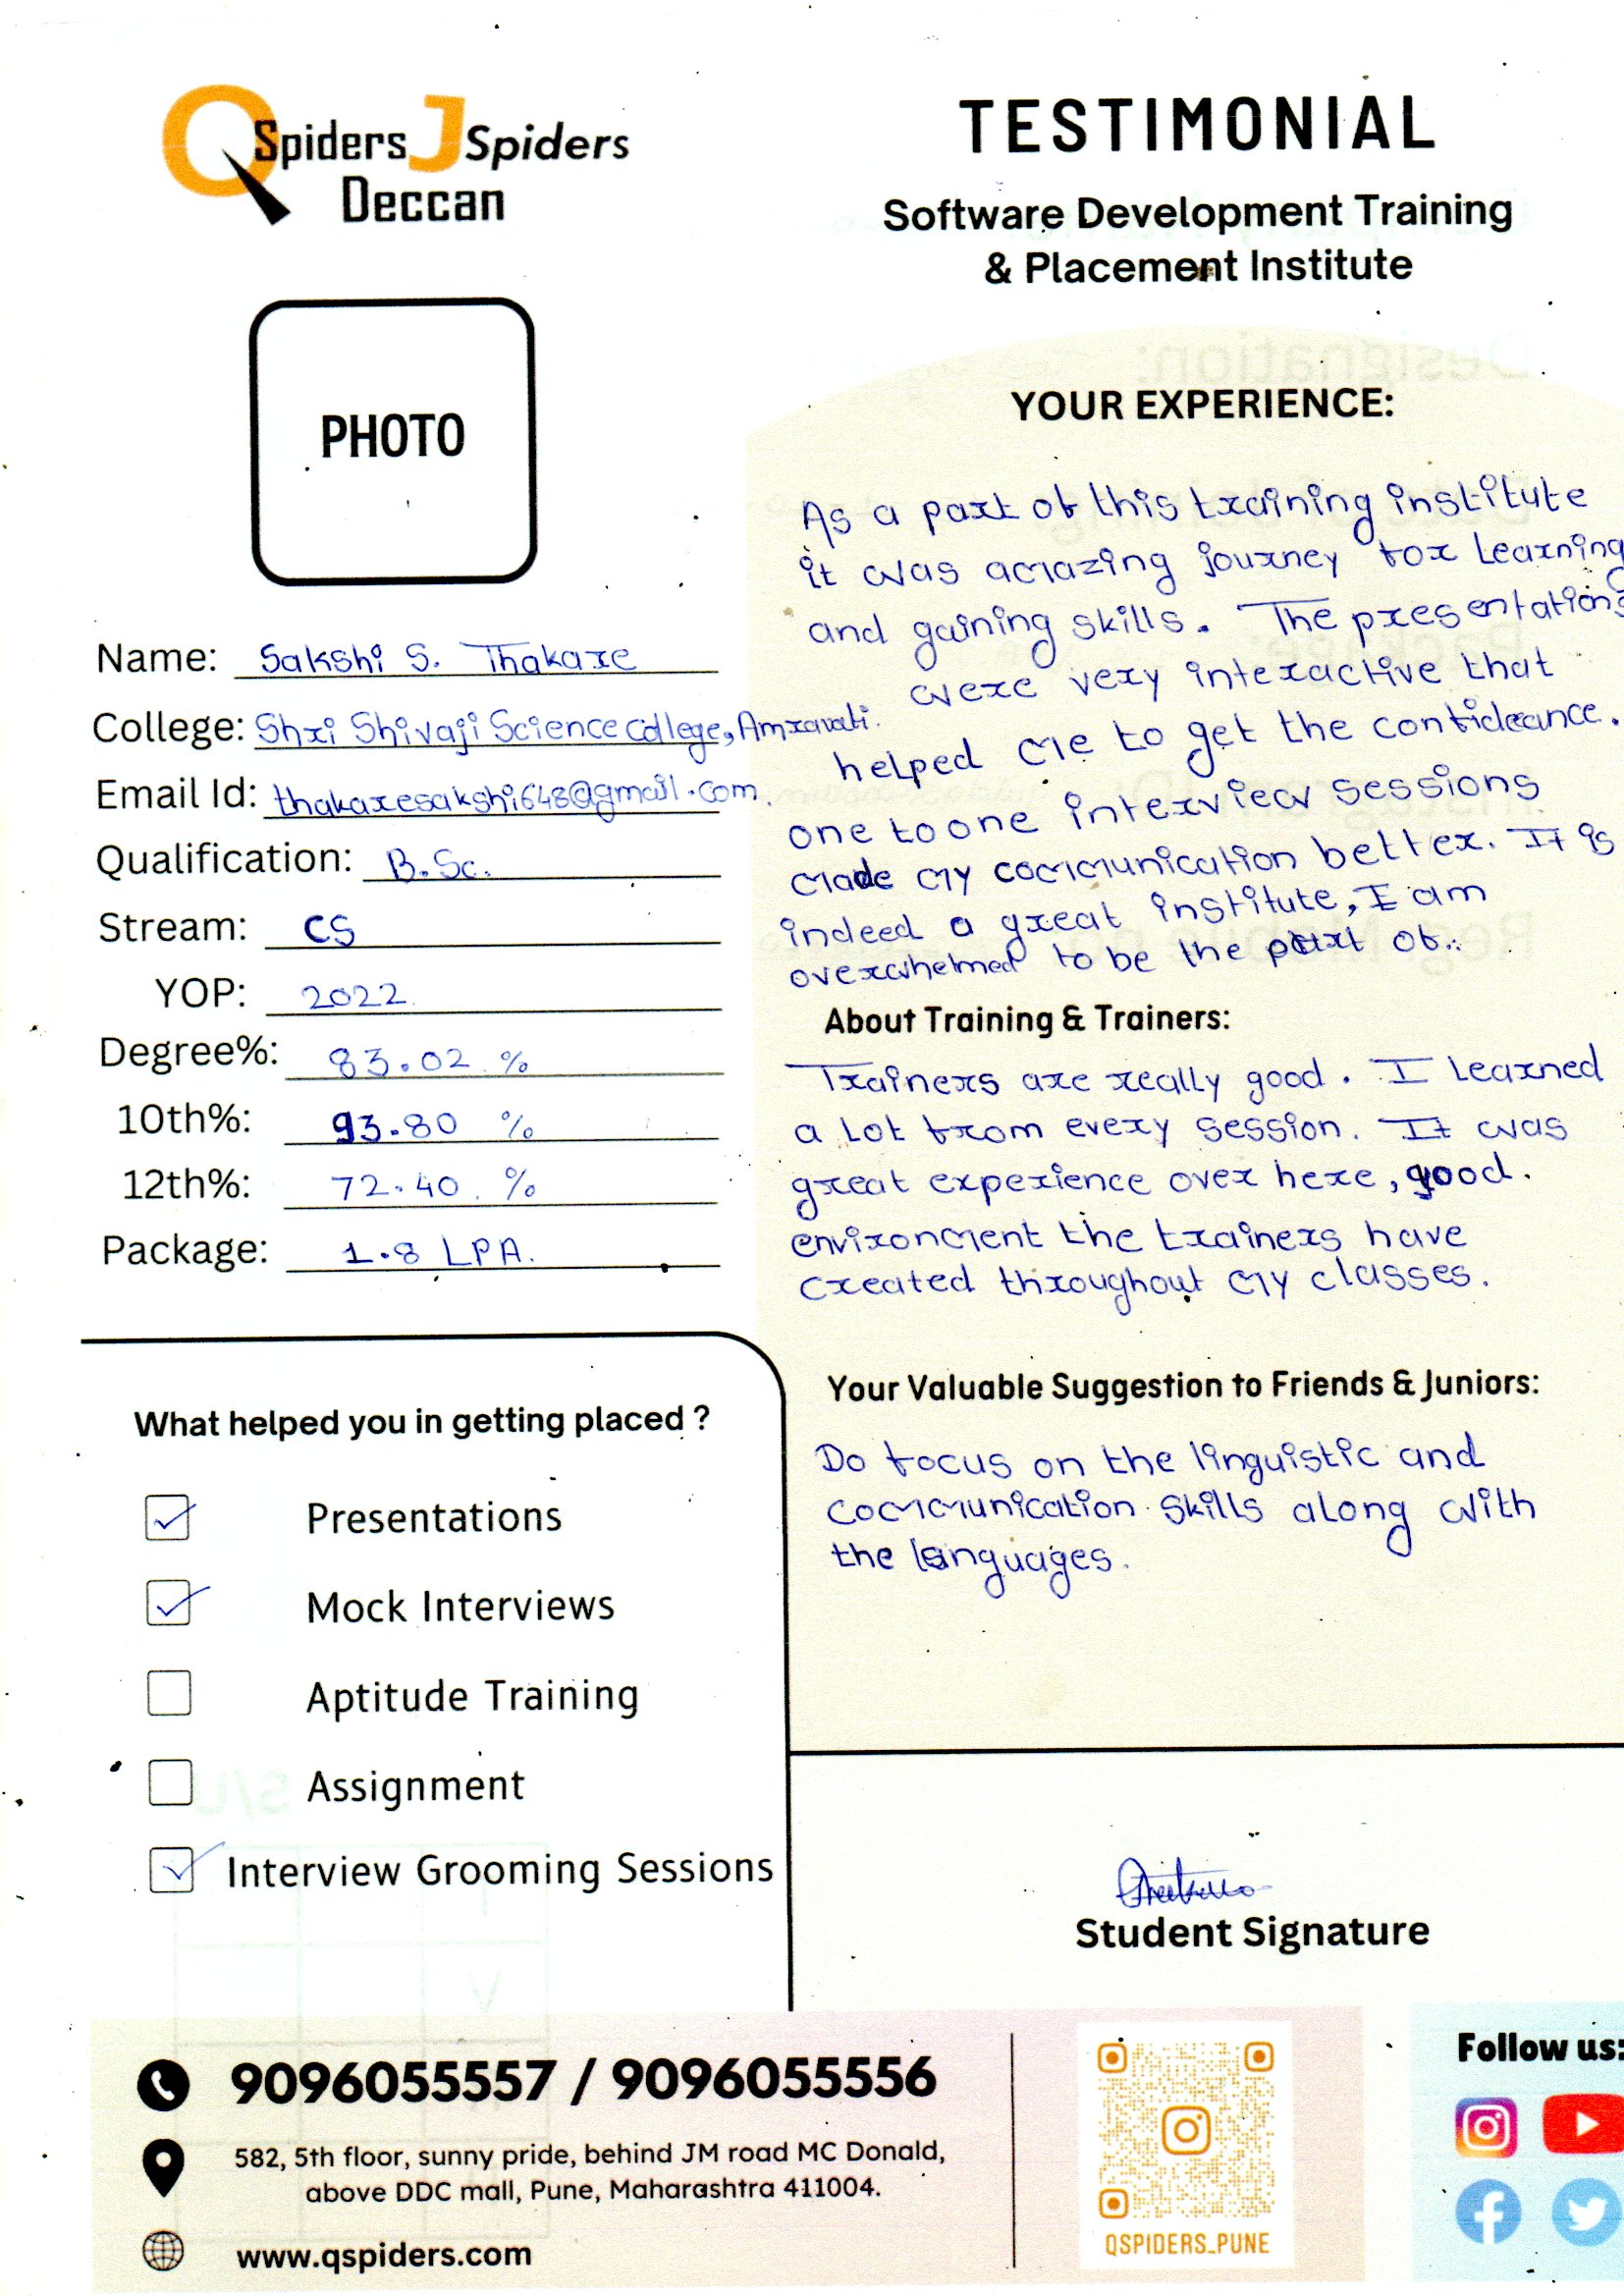 QSpiders JSpiders
Deccan
TESTIMONIAL
Software Development Training
& Placement Institute
PHOTO
Name: Sakshi S. Thakare
College: Shri Shivaji Science College, Amravati.
Email Id: thakaresakshi648@gmail.com.
Qualification: B.Sc.
Stream: CS
YOP: 2022
Degree%: 83.02 %
10th%: 93.80 %
12th%: 72.40 %
Package: 1.8 LPA.
What helped you in getting placed ?
Presentations
Mock Interviews
Aptitude Training
Assignment
Interview Grooming Sessions
YOUR EXPERIENCE:
As a part of this training institute
it was amazing journey for learning
and gaining skills. The presentations
were very interactive that
helped me to get the confideance.
one to one interview sessions
made my communication better. It is
indeed a great institute, I am
overwhelmed to be the part of..
About Training & Trainers:
Trainers are really good. I learned
a lot from every session. It was
great experience over here, good.
environment the trainers have
created throughout my classes.
Your Valuable Suggestion to Friends & Juniors:
Do focus on the linguistic and
communication skills along with
the languages.
Student Signature
9096055557 / 9096055556
582, 5th floor, sunny pride, behind JM road MC Donald,
above DDC mall, Pune, Maharashtra 411004.
www.qspiders.com
QSPIDERS_PUNE
Follow us: